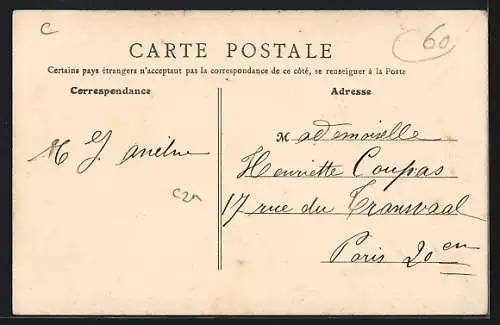 C
60
CARTE POSTALE
Certains pays étrangers n'acceptant pas la correspondance de ce côté, se renseigner à la Poste
Correspondance
Adresse
Mademoiselle
Henriette Coupas
17 rue du Transvaal
Paris 20 em